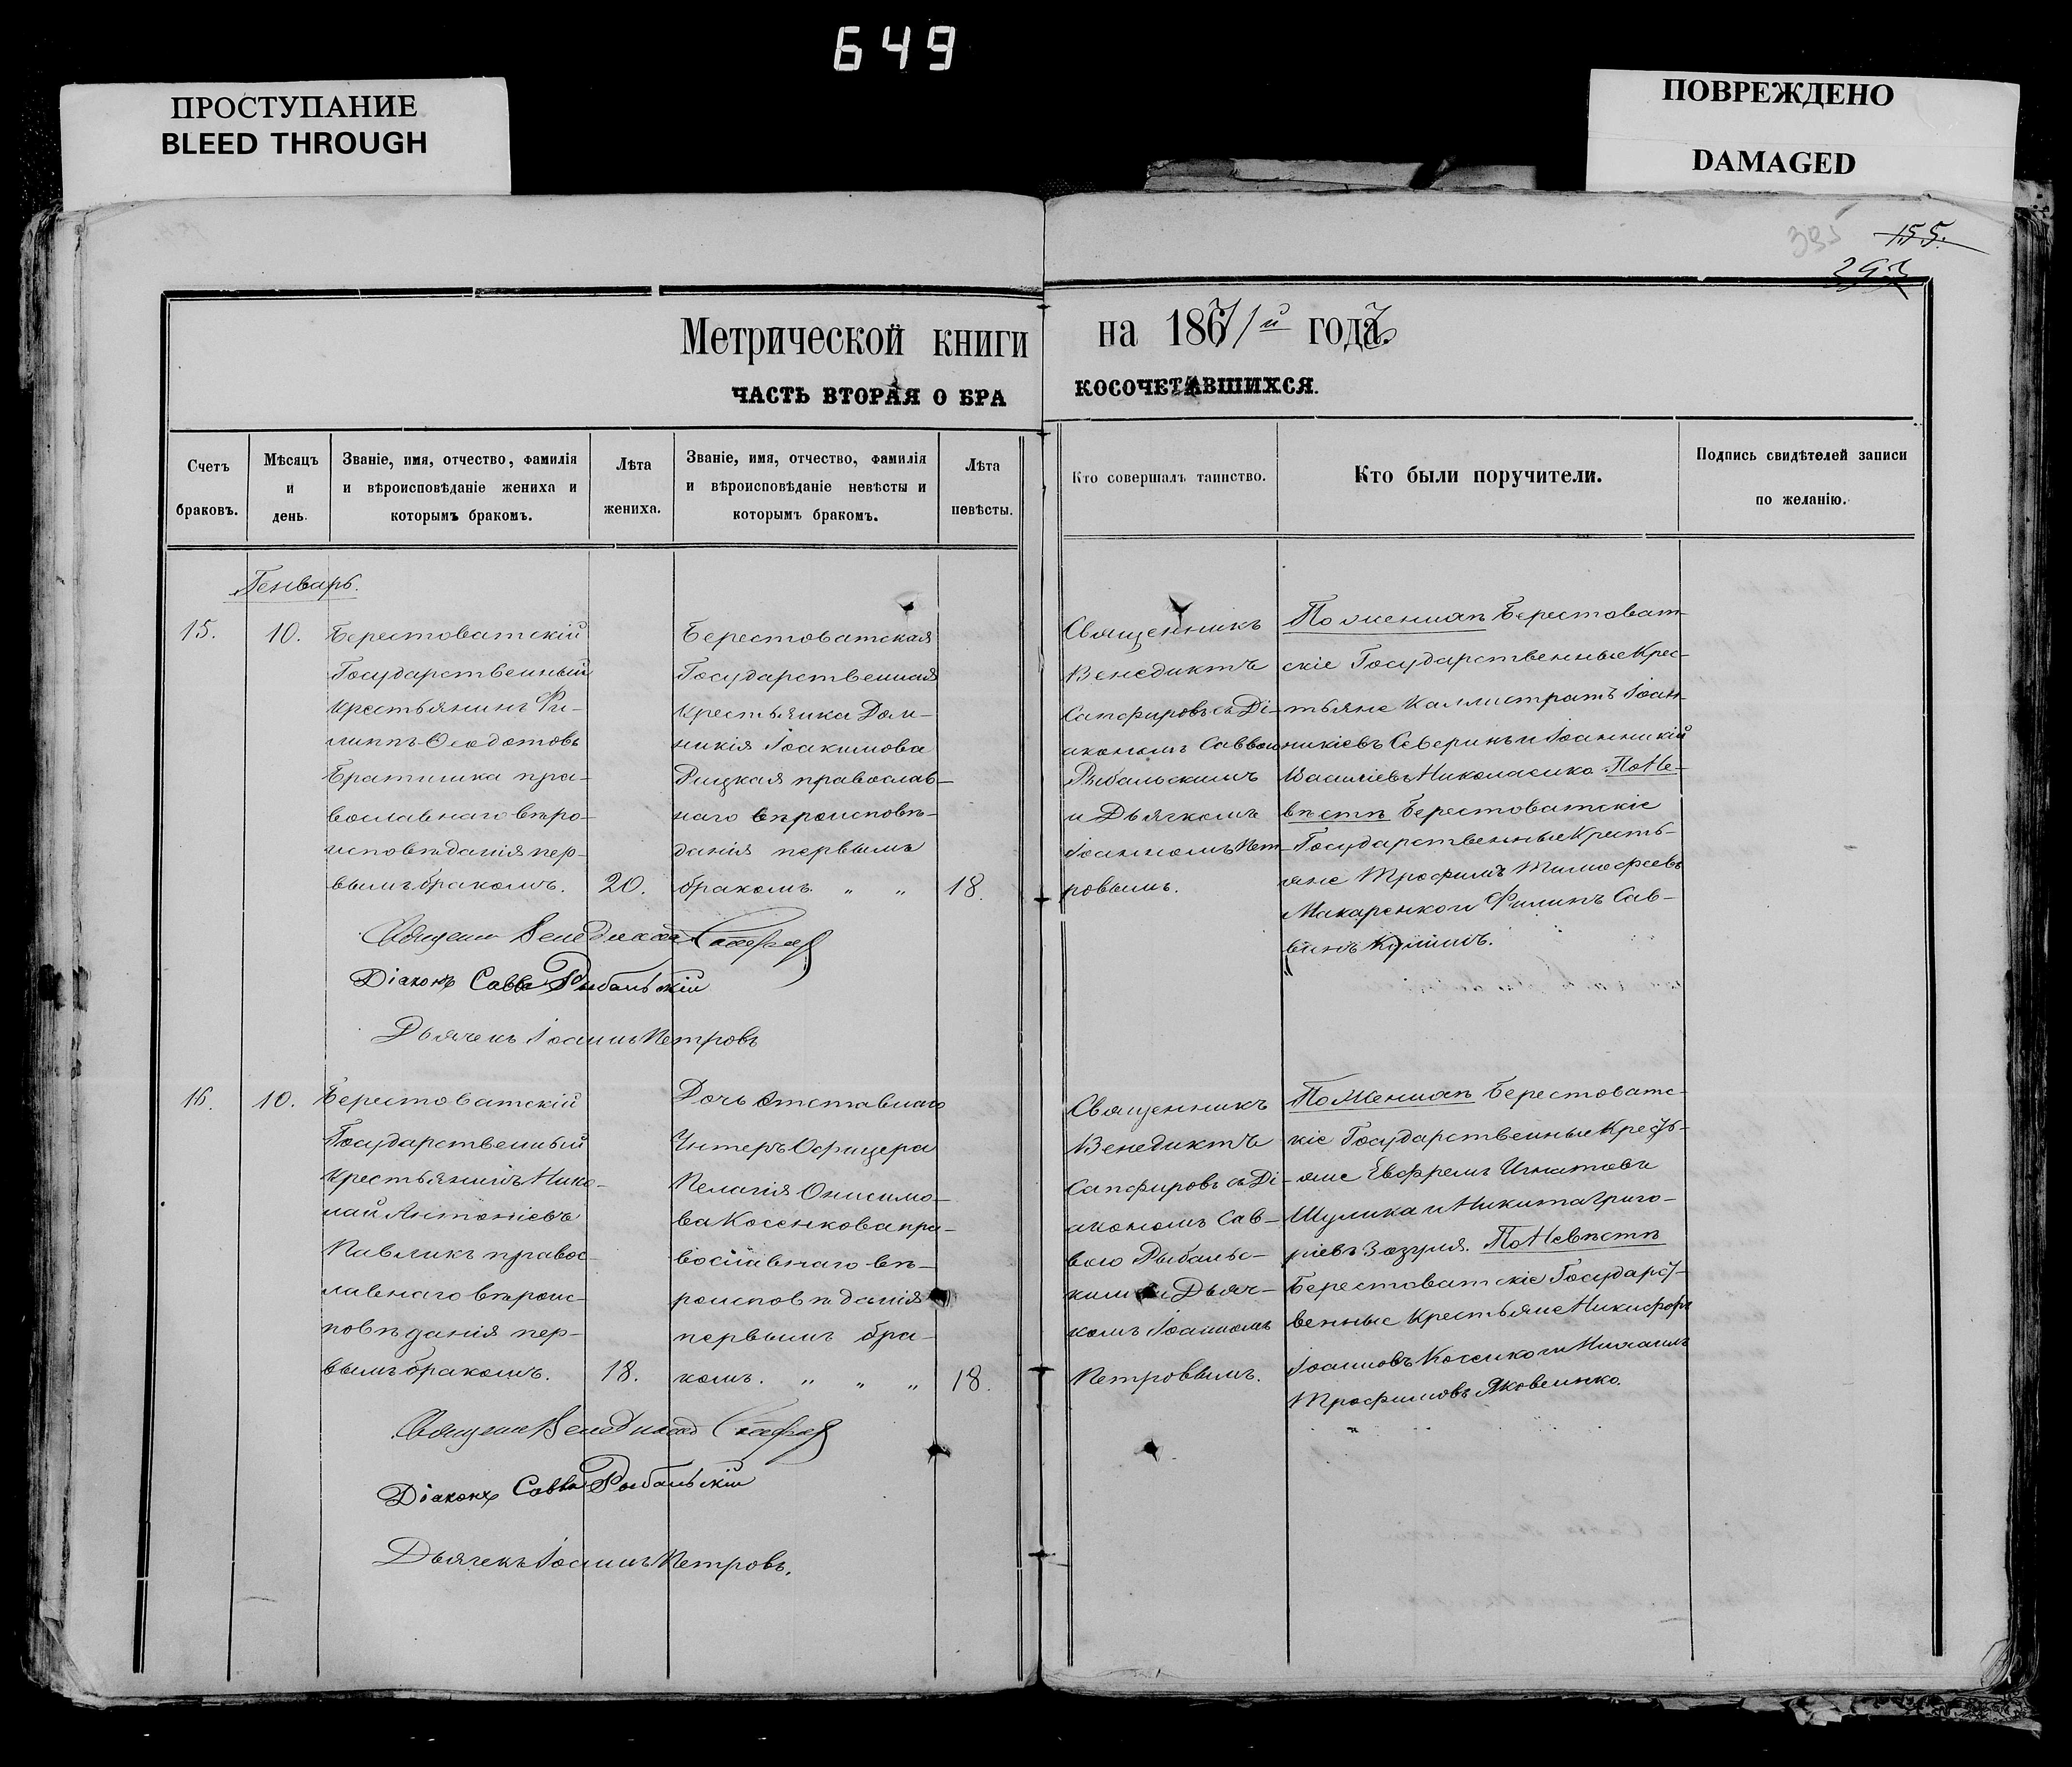 649
ПРОСТУПАНИЕ
BLEED THROUGH
ПОВРЕЖДЕНО
DAMAGED
395
155.
393
Метрической книги на 1871й года.
ЧАСТЬ ВТОРАЯ О БРАКОСОЧЕТАВШИХСЯ.
Счетъ
браковъ.
Мѣсяцъ
и
день.
Званіе, имя, отчество, фамилія
и вѣроисповѣданіе жениха и
которымъ бракомъ.
Лѣта
жениха.
Званіе, имя, отчество, фамилія
и вѣроисповѣданіе невѣсты и
которымъ бракомъ.
Лѣта
невѣсты.
Кто совершалъ таинство.
Кто были поручители.
Подпись свидѣтелей записи
по желанію.
Генварь.
15.
10.
Берестоватскій
Государственный
Крестьянинъ Фи-
липпъ Ѳеодотовъ
Братишка пра-
вославнаго вѣро-
исповѣданія пер-
вымъ бракомъ.
20.
Берестоватская
Государственная
Крестьянка Дом-
никія Іоакимова
Рицкая православ-
наго вѣроисповѣ-
данія первымъ
бракомъ „ „
18.
Священникъ
Венедиктъ
Сапфировъ съ Ді-
акономъ Саввою
Рыбальскимъ
и Дьячкомъ
Іоанномъ Пет-
ровымъ.
По женихѣ Берестоват-
скіе Государственные Крес-
тьяне Каллистратъ Іоан-
никіевъ Северинъ и Іоанникій
Василіевъ Николаенко. По Не-
вѣстѣ Берестоватскіе
Государственные Кресть-
яне Трофимъ Тимофеевъ
Макаренко и Филипъ Сав-
винъ
Священникъ Венедиктъ Сапфировъ
Діаконъ Савва Рыбальскій
Дьячекъ Іоаннъ Петровъ
16.
10.
Берестоватскій
Государственный
Крестьянинъ Нико-
лай Антоніевъ
Павликъ правос-
лавнаго вѣроис-
повѣданія пер-
вымъ бракомъ.
18.
Дочь отставнаго
Унтеръ Офицера
Пелагія Онисимо-
ва Косенкова пра-
вославнаго вѣ-
роисповѣданія
первымъ бра-
комъ. „ „ „
18.
Священникъ
Венедиктъ
Сапфировъ съ Ді-
акономъ Сав-
вою Рыбальс-
кимъ и Дьяч-
комъ Іоанномъ
Петровымъ.
По Женихѣ Берестоватс-
кіе Государственные Кресть-
яне Евфремъ Игнатовъ
Шулика и Никита Григо-
ріевъ Зозуля. По Невѣстѣ
Берестоватскіе Государст-
венные Крестьяне Никифоръ
Іоанновъ Косенко и Михаилъ
Трофимовъ Яковенко.
Священникъ Венедиктъ Сапфировъ
Діаконъ Савва Рыбальскій
Дьячекъ Іоаннъ Петровъ.